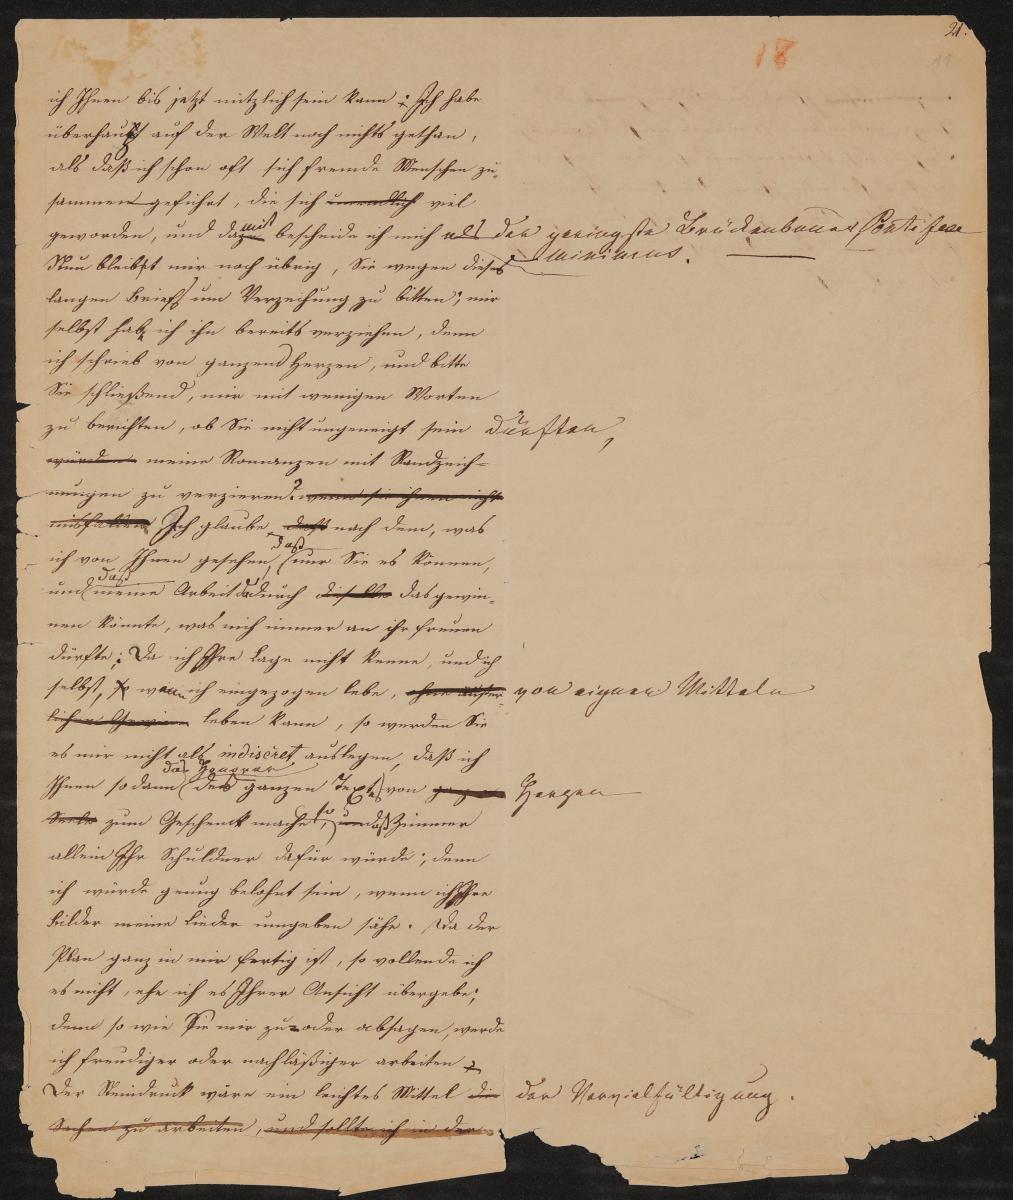 21.
18
11
ich Ihnen bis jetzt nützlich sein kann; Ich habe
überhaupt auf der Welt noch nichts gethan,
als daß ich schon oft sich fremde Menschen zu-
sammen geführt, die sich unendlich viel
geworden, und damit bescheide ich mich als der geringste Brückenbauer Pontifex
minimus.
Nun bleibt mir noch übrig, Sie wegen dieses
langen Briefs um Verzeihung zu bitten; mir
selbst hab ich ihn bereits verziehen, denn
ich schrieb von ganzem Herzen, und bitte
Sie schließend, mir mit wenigen Worten
zu berichten, ob Sie nicht ungeneigt sein dürften,
würden meine Romanzen mit Randzeich-
nungen zu verzieren? wenn sie ihnen nicht
misfallen Ich glaube, daß nach dem, was
ich von Ihnen gesehen, daß nur Sie es können,
und daß meine Arbeit dadurch dieselbe das gewin-
nen könnte, was mich immer an ihr freuen
dürfte; Da ich Ihre Lage nicht kenne, und ich
selbst, wenn ich eingezogen lebe, von eignen Mitteln
leben kann, so werden Sie
es mir nicht als indiscret auslegen, daß ich
Ihnen sodann das Honorar des ganzen Textes von ganzer Herzen
Seele zum Geschenk mache, so daß Zimmer
allein Ihr Schuldner dafür würde; denn
ich würde genug belohnt sein, wenn ich Ihre
Bilder meine Lieder umgeben sähe. Da der
Plan ganz in mir fertig ist, so vollende ich
es nicht, ehe ich es Ihrer Ansicht übergebe;
denn so wie Sie mir zu- oder absagen, werde
ich freudiger oder nachläßiger arbeiten
Der Steindruck wäre ein leichtes Mittel die der Vervielfältigung.
Sachen zu arbeiten, und sollte ich in der